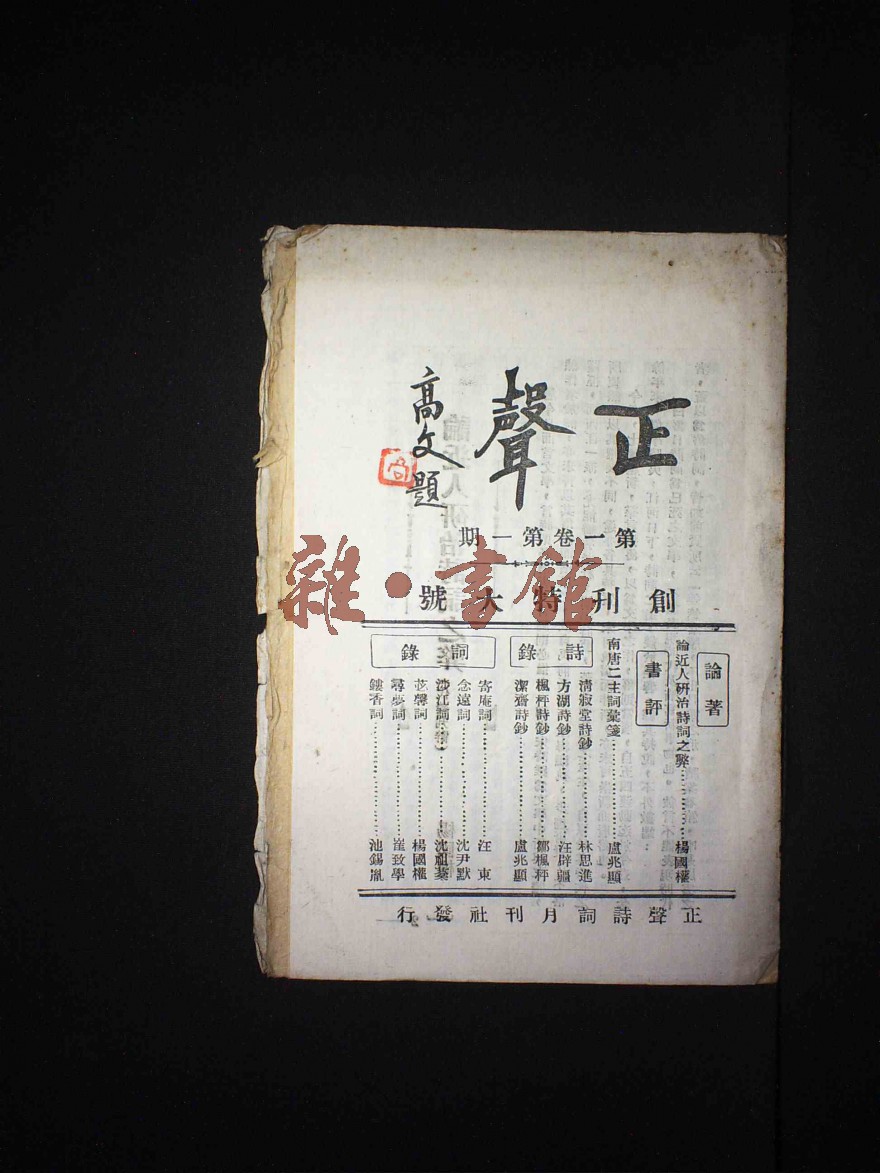 正聲
高文題
第一卷第一期
創刊特大號
雜·書館
論著
論近人研治詩詞之弊…………楊國權
書評
南唐二主詞彙箋…………盧兆顯
詩錄
清寂堂詩鈔…………林思進
方湖詩鈔…………汪辟疆
楓枰詩鈔…………鄒楓枰
潔齋詩鈔…………盧兆顯
詞錄
寄庵詞…………汪東
念遠詞…………沈尹默
涉江詞…………沈祖棻
苾馨詞…………楊國權
尋夢詞…………崔致學
鏤香詞…………池錫胤
正聲詩詞月刊社發行